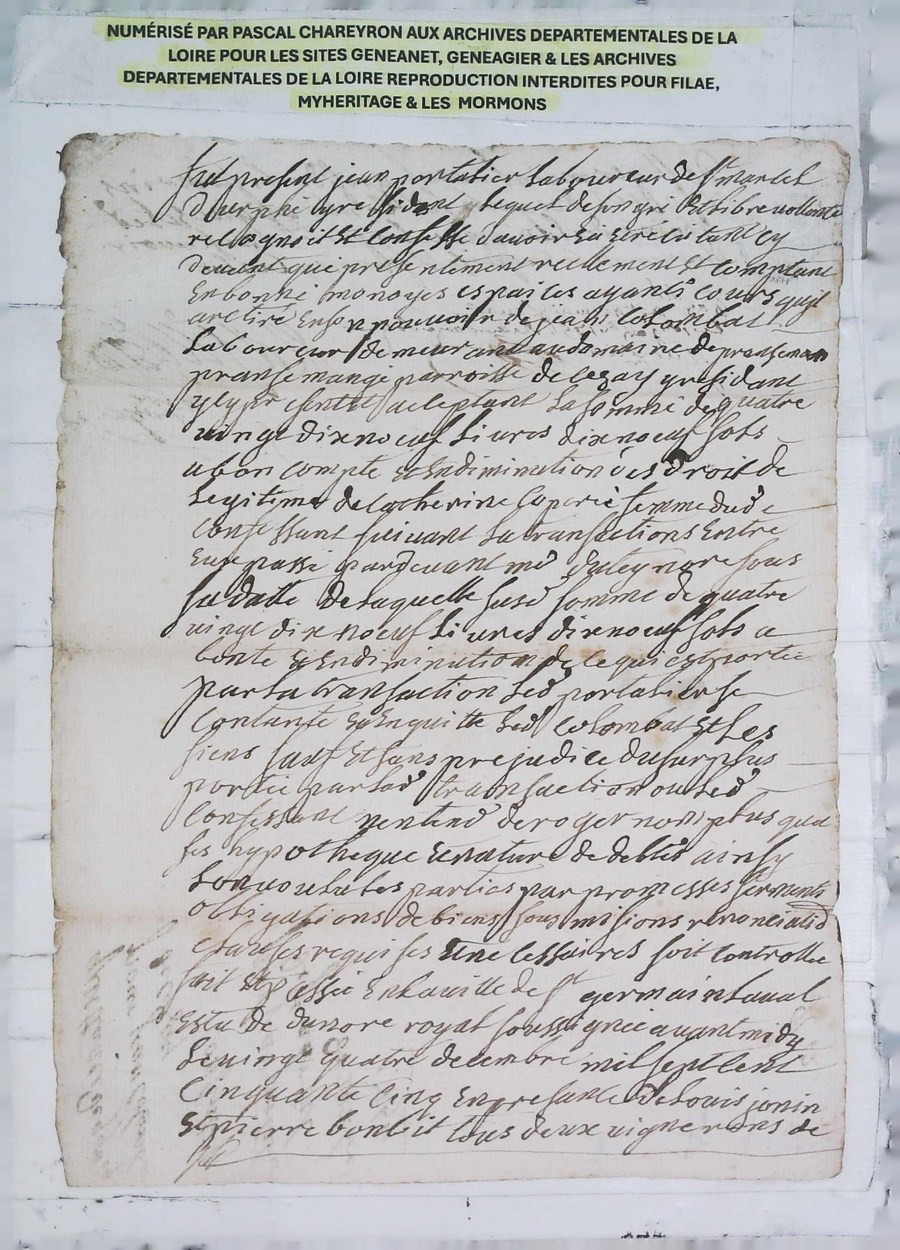 NUMÉRISÉ PAR PASCAL CHAREYRON AUX ARCHIVES DEPARTEMENTALES DE LA
LOIRE POUR LES SITES GENEANET, GENEAGIER & LES ARCHIVES
DEPARTEMENTALES DE LA LOIRE REPRODUCTION INTERDITES POUR FILAE,
MYHERITAGE & LES MORMONS
fut present jean portatier Laboureur de st marcel
d'urphé y residant Lequel de son gré Et libre vollonté
recognoit Et confesse davoir Eu Et recu tant cy
devant que presentement reellement Et comptant
En bonne monoyes espaites ayants cours quil
a retiré En son pouvoir de jean Colombat
Laboureur demeurant au domaine de
pransemange parroisse de cezay y residant
y present Et acceptant La somme de quatre
vingt dix noeuf Livres dix noeuf sols
a bon compte Et En diminution des droit de
Legitime de catherine femme dud
confessant suivant La transactions Entre
Eux passé pardevant me nore sous
sa datte de laquelle susd somme de quatre
vingt dix noeuf Livres dix noeuf sols a
conte Et En diminution de ce qui est porté
par La transaction Led portatier se
contante Et En quitte Led Colombat Et Les
siens sauf Et sans prejudice du surplus
portée par lad transaction ou Led
confessant nentend deroger non plus qua
ses hypotheque Et nature de debtes ainsy
Lont voulu Les parties par promesses serments
obligations de biens sousmissions
clauses requises Et necessaires soit controllé
fait Et passée En la ville de st germain Laval
Estude du nore royal soussignée avant midy
Le vingt quatre decembre mil sept cent
cinquante cinq En presance de Louis jonin
Et pierre tous deux vignerons de